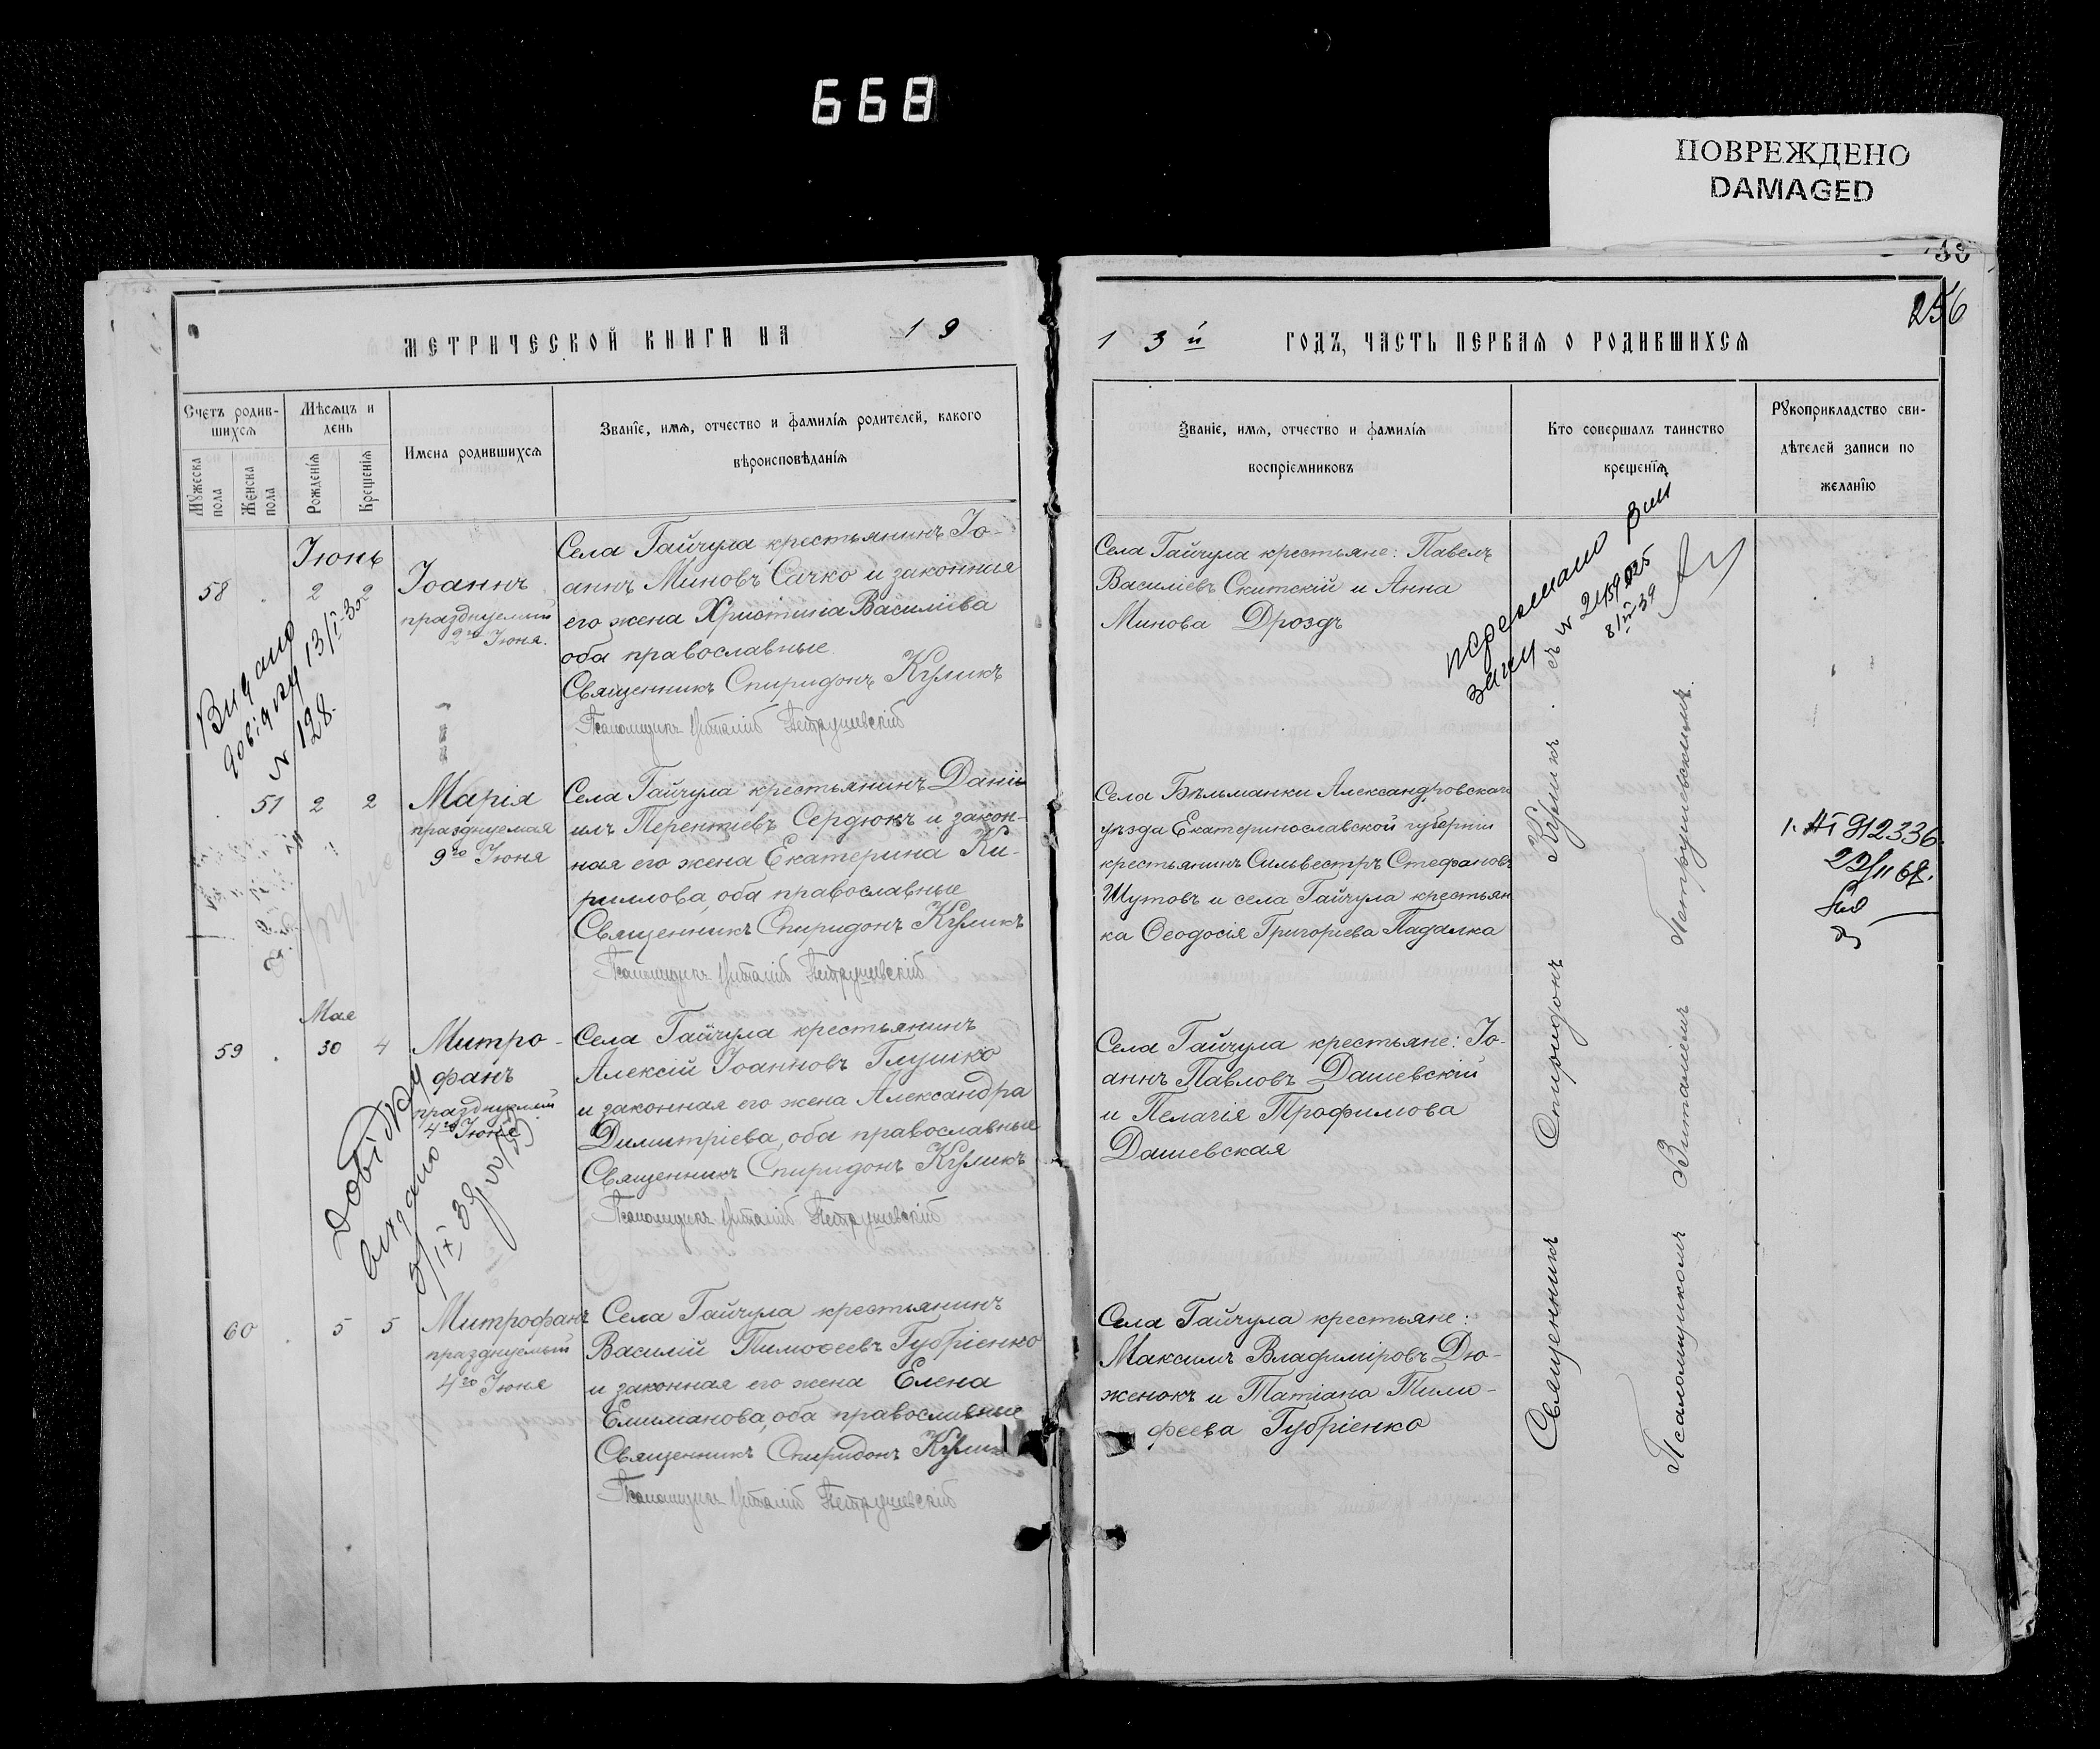 668
ПОВРЕЖДЕНО
DAMAGED
256
МЕТРИЧЕСКОЙ КНИГИ НА 19
13й ГОДЪ, ЧАСТЬ ПЕРВАЯ О РОДИВШИХСЯ
Счетъ родив-
шихся
Мужеска пола
Женска пола
Мѣсяцъ и
день
Рожденія
Крещенія
Имена родившихся
Званіе, имя, отчество и фамилія родителей, какого
вѣроисповѣданія
Званіе, имя, отчество и фамилія
воспріемниковъ
Кто совершалъ таинство
крещенія
Рукоприкладство сви-
дѣтелей записи по
желанію
Іюнь
58 2 2
Іоаннъ
празднуемый
2го Іюня.
Села Гайчула крестьянинъ Іо-
аннъ Миновъ Сачко и законная
его жена Христина Василіева
оба православные.
Священникъ Спиридонъ Куликъ
Псаломщикъ Виталій Петрушевскій
Села Гайчула крестьяне: Павелъ
Василіевъ Скитскій и Анна
Минова Дроздъ
Видано
довідку 13/I-30
№ 128.
51 2 2
Марія
празднуемая
9го Іюня
Села Гайчула крестьянинъ Дані-
илъ Терентіевъ Сердюкъ и закон-
ная его жена Екатерина Ки-
риллова, оба православные
Священникъ Спиридонъ Куликъ
Псаломщикъ Виталій Петрушевскій
Села Бѣльманки Александровскаго
уѣзда Екатеринославской губерніи
крестьянинъ Сильвестръ Стефановъ
Шутовъ и села Гайчула крестьян
ка Ѳеодосія Григоріева Падалка
912336
Мая
59 30 4
Митро-
фанъ
празднуемый
4го Іюня
Села Гайчула крестьянинъ
Алексій Іоанновъ Глушко
и законная его жена Александра
Димитріева, оба православные
Священникъ Спиридонъ Куликъ
Псаломщикъ Виталій Петрушевскій
Села Гайчула крестьяне: Іо-
аннъ Павловъ Дашевскій
и Пелагія Трофимова
Дашевская
Довідку
видано
60 5 5
Митрофанъ
празднуемый
4го Іюня
Села Гайчула крестьянинъ
Василій Тимоѳеевъ Губріенко
и законная его жена Елена
Елиманова, оба православные
Священникъ Спиридонъ Куликъ
Псаломщикъ Виталій Петрушевскій
Села Гайчула крестьяне:
Максимъ Владиміровъ Дю-
женокъ и Татіана Тимо-
феева Губріенко
Священникъ Спиридонъ Куликъ.
съ
Псаломщикомъ Виталіемъ Петрушевскимъ.